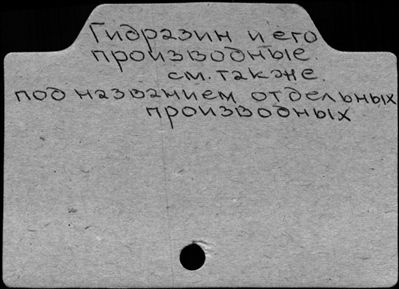 Гидразин и его
производные.
см. также.
под названием отдельных
производных